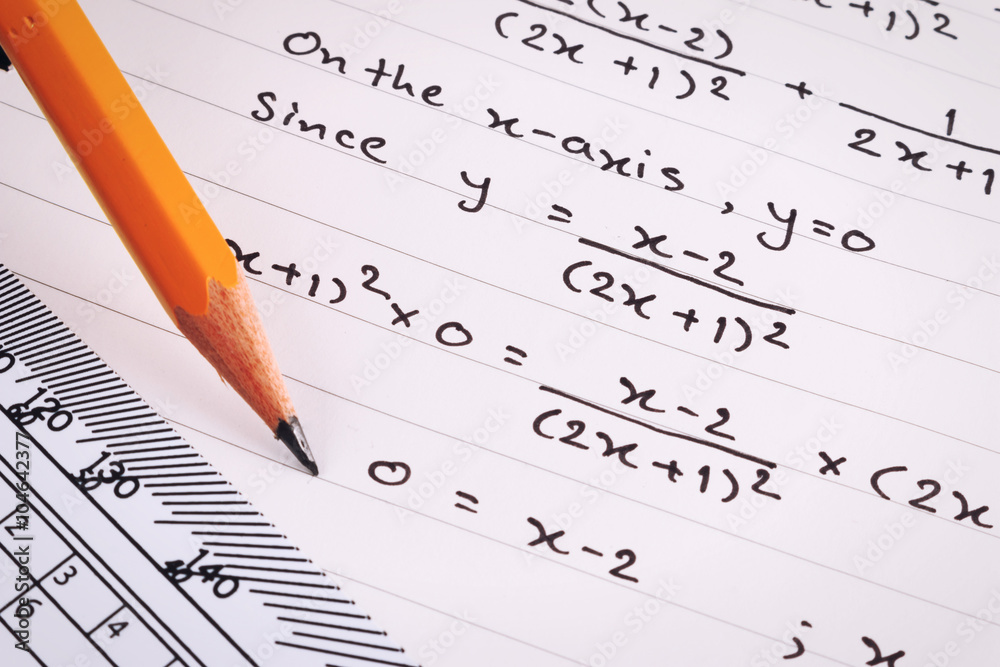 (x-2)/(2x+1)² + 1/2x+1
+1)²
On the x-axis, y=0
Since y = x-2/(2x+1)²
x+1)² × 0 = x-2/(2x+1)² × (2x
0 = x-2
; x
120
130
140
3
4
Adobe Stock | #104642377